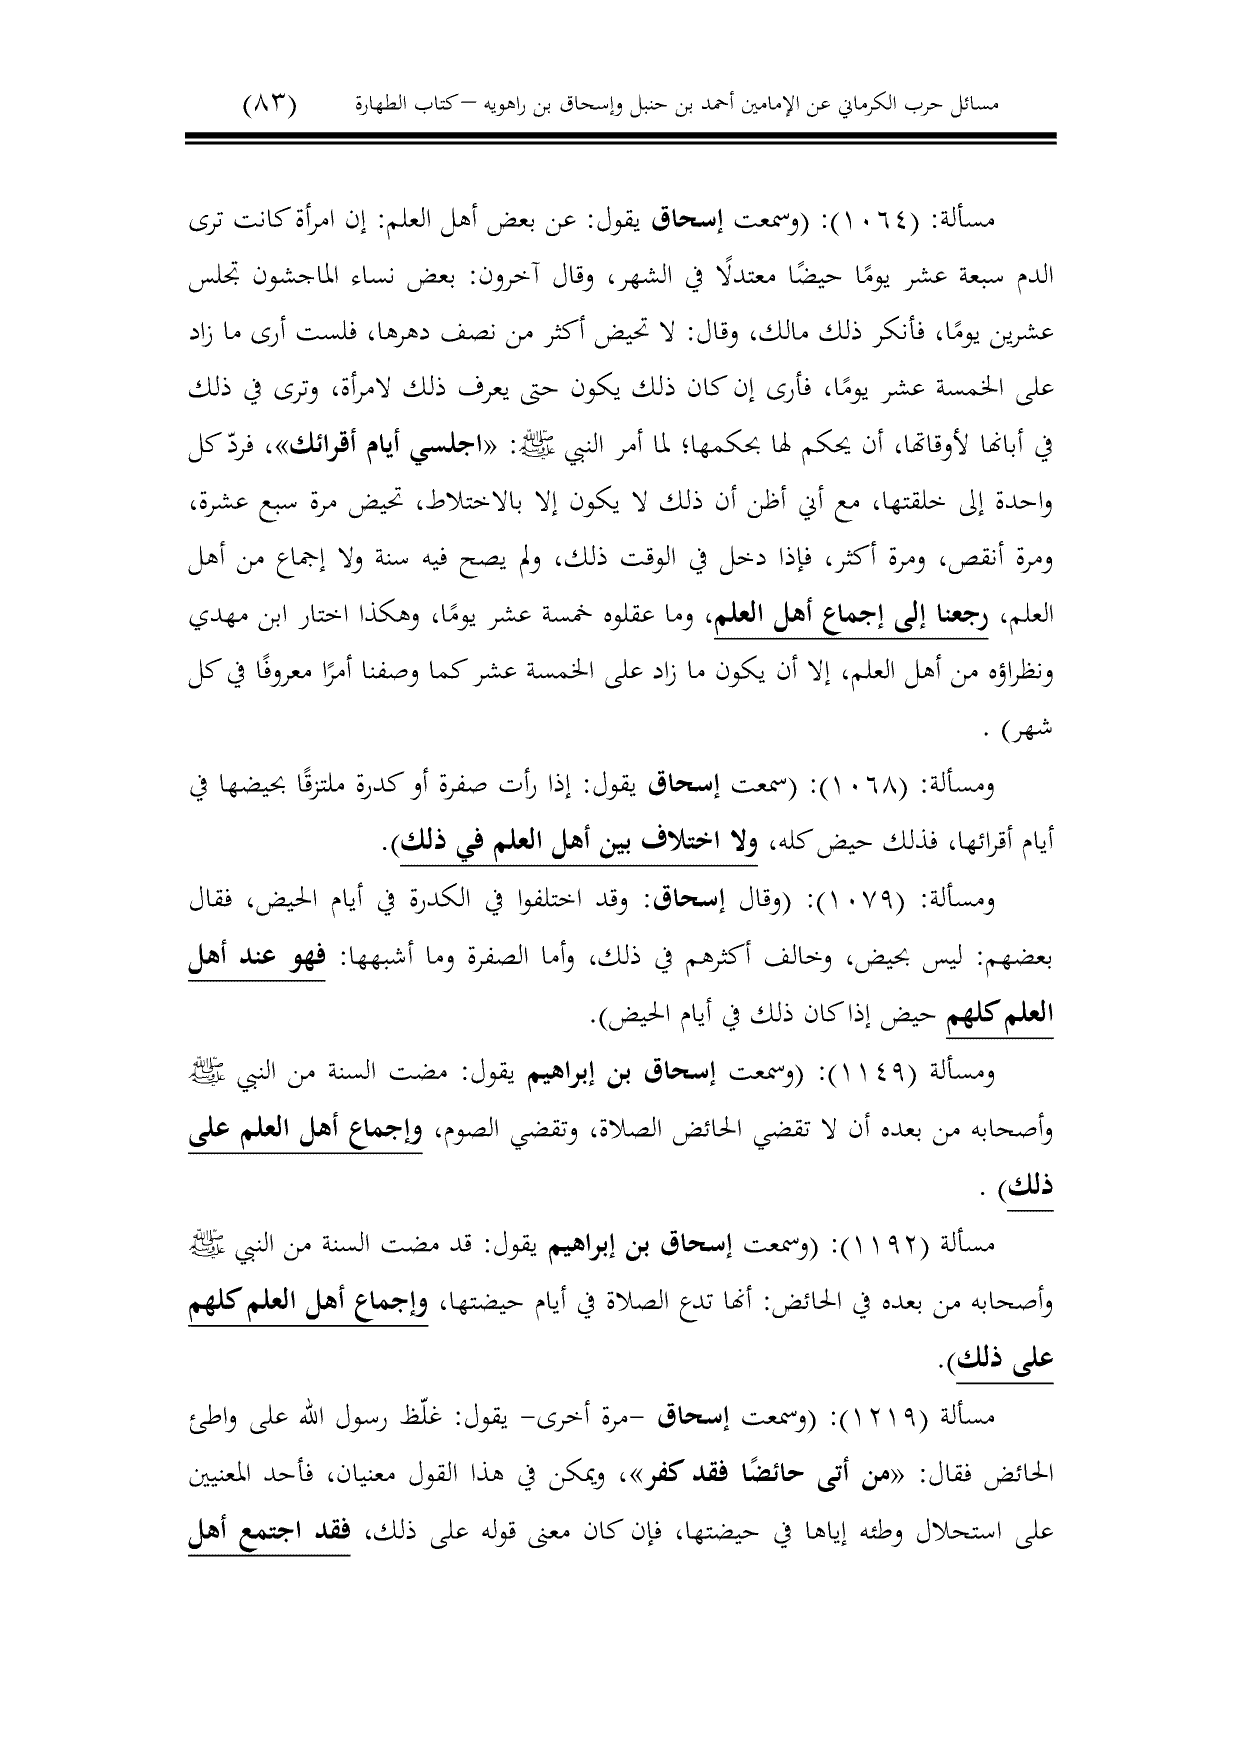 مسائل حرب الكرماني عن الإمامين أحمد بن حنبل وإسحاق بن راهويه –كتاب الطهارة (٨٣)
مسألة: (١٠٦٤): (وسمعت إسحاق يقول: عن بعض أهل العلم: إن امرأة كانت ترى
الدم سبعة عشر يومًا حيضًا معتدلًا في الشهر، وقال آخرون: بعض نساء الماجشون تجلس
عشرين يومًا، فأنكر ذلك مالك، وقال: لا تحيض أكثر من نصف دهرها، فلست أرى ما زاد
على الخمسة عشر يومًا، فأرى إن كان ذلك يكون حتى يعرف ذلك لامرأة، وترى في ذلك
في أبانها لأوقاتها، أن يحكم لها بحكمها؛ لما أمر النبي ﷺ: «اجلسي أيام أقرائك»، فردّ كل
واحدة إلى خلقتها، مع أني أظن أن ذلك لا يكون إلا بالاختلاط، تحيض مرة سبع عشرة،
ومرة أنقص، ومرة أكثر، فإذا دخل في الوقت ذلك، ولم يصح فيه سنة ولا إجماع من أهل
العلم، رجعنا إلى إجماع أهل العلم، وما عقلوه خمسة عشر يومًا، وهكذا اختار ابن مهدي
ونظراؤه من أهل العلم، إلا أن يكون ما زاد على الخمسة عشر كما وصفنا أمرًا معروفًا في كل
شهر) .
ومسألة: (١٠٦٨): (سمعت إسحاق يقول: إذا رأت صفرة أو كدرة ملتزقًا بحيضها في
أيام أقرائها، فذلك حيض كله، ولا اختلاف بين أهل العلم في ذلك).
ومسألة: (١٠٧٩): (وقال إسحاق: وقد اختلفوا في الكدرة في أيام الحيض، فقال
بعضهم: ليس بحيض، وخالف أكثرهم في ذلك، وأما الصفرة وما أشبهها: فهو عند أهل
العلم كلهم حيض إذا كان ذلك في أيام الحيض).
ومسألة (١١٤٩): (وسمعت إسحاق بن إبراهيم يقول: مضت السنة من النبي ﷺ
وأصحابه من بعده أن لا تقضي الحائض الصلاة، وتقضي الصوم، وإجماع أهل العلم على
ذلك) .
مسألة (١١٩٢): (وسمعت إسحاق بن إبراهيم يقول: قد مضت السنة من النبي ﷺ
وأصحابه من بعده في الحائض: أنها تدع الصلاة في أيام حيضتها، وإجماع أهل العلم كلهم
على ذلك).
مسألة (١٢١٩): (وسمعت إسحاق -مرة أخرى- يقول: غلّظ رسول الله على واطئ
الحائض فقال: «من أتى حائضًا فقد كفر»، ويمكن في هذا القول معنيان، فأحد المعنيين
على استحلال وطئه إياها في حيضتها، فإن كان معنى قوله على ذلك، فقد اجتمع أهل